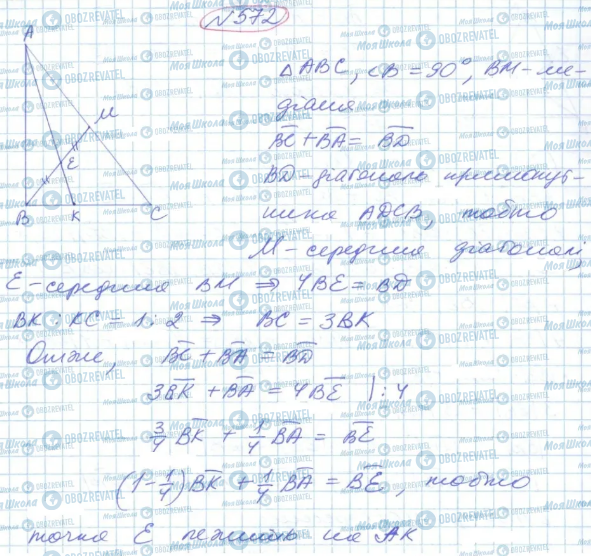 №572
A
M
E
B
K
C
△ABC, ∠B = 90°, BM - ме-
діана
B̅C̅ + B̅A̅ = B̅D̅
BD - діагональ прямокут-
ника ADCB, тобто
M - середина діагоналі,
E - середина BM ⇒ 4BE = BD
BK : KC = 1 : 2 ⇒ BC = 3BK
Отже, B̅C̅ + B̅A̅ = B̅D̅
3B̅K̅ + B̅A̅ = 4B̅E̅ | : 4
3/4 B̅K̅ + 1/4 B̅A̅ = B̅E̅
(1 - 1/4) B̅K̅ + 1/4 B̅A̅ = B̅E̅, тобто
точка E лежить на AK
Моя Школа
OBOZREVATEL